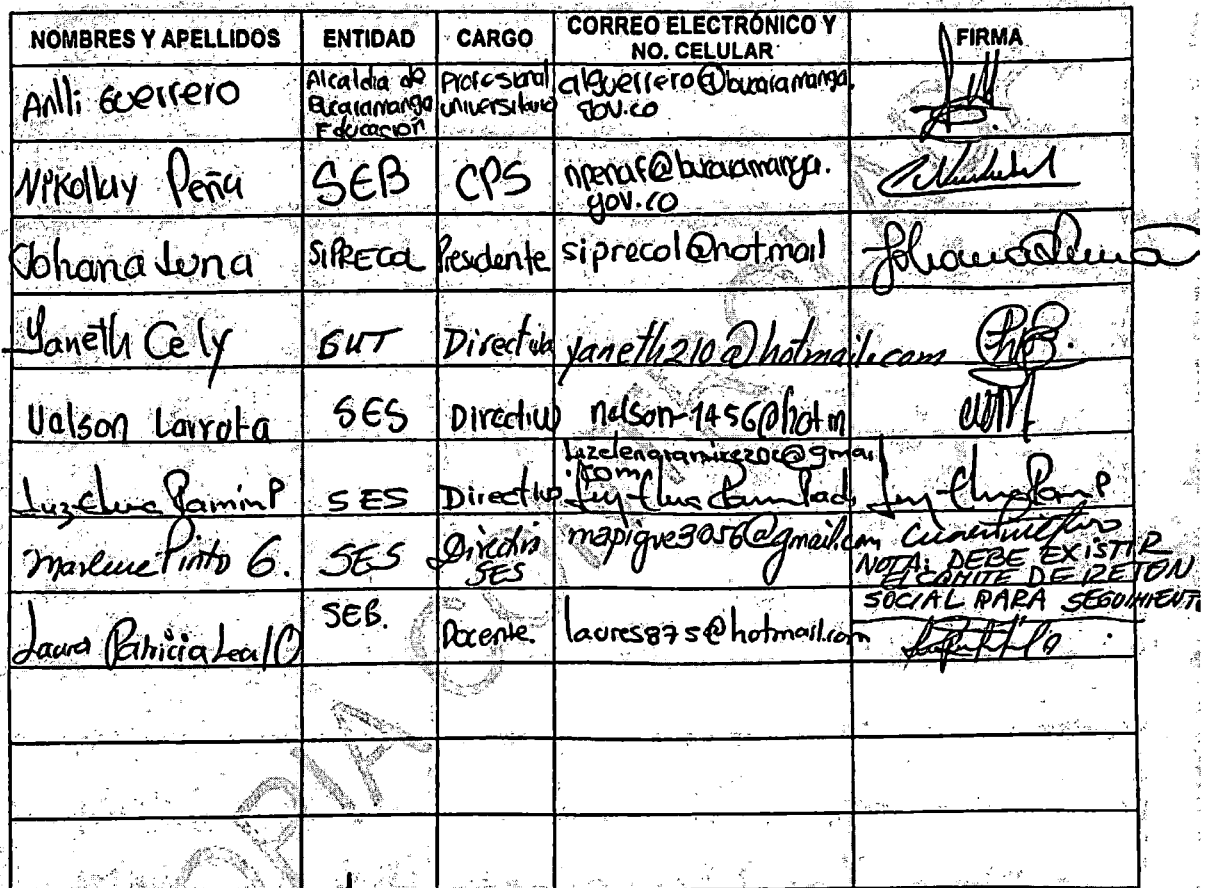 NOMBRES Y APELLIDOS ENTIDAD CARGO CORREO ELECTRÓNICO Y NO. CELULAR FIRMA
Anlli Guerrero Alcaldia de Bucaramanga Educación Profesional universitario alguerrero@bucaramanga.gov.co
Nikollay Peña SEB CPS npenaf@bucaramanga.gov.co
Johana Luna SIPRECOL Presidente siprecol@hotmail Johana Luna
Yaneth Cely Directiva yaneth210@hotmail.com
Larrota SES Directivo nelson-1456@hotm
SES Directivo luzelenaramirez @gmail.com
Marlene Pinto G. SES SES mapigue3056@gmail.com
NOTA: DEBE EXISTIR
EL COMITE DE RETEN
SOCIAL PARA SEGUIMIENTO
Laura Patricia Leal O SEB. Docente. laures875@hotmail.com
COPIA